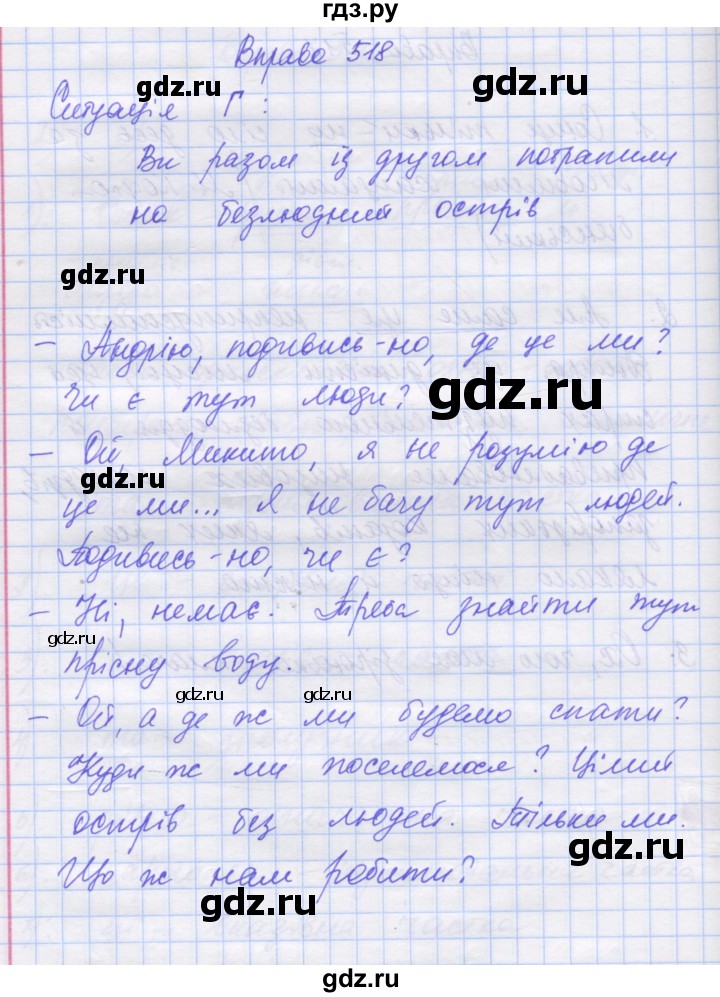 гдз.ру
Вправа 518
gdz.ru
Ситуація Г:
Ви разом із другом потрапили
на безлюдний острів
gdz.ru
– Андрію, подивись-но, де це ми?
Чи є тут люди?
gdz.ru
– Ой, Микито, я не розумію де
gdz.ru
це ми... Я не бачу тут людей.
Подивись-но, чи є?
– Ні, немає. Треба знайти тут
gdz.ru
прісну воду.
gdz.ru gdz.ru
– Ой, а де ж ми будемо спати?
Куди ж ми поселемося? Цілий
острів без людей. Тільки ми.
gdz.ru
Що ж нам робити?
gdz.ru
gdz.ru